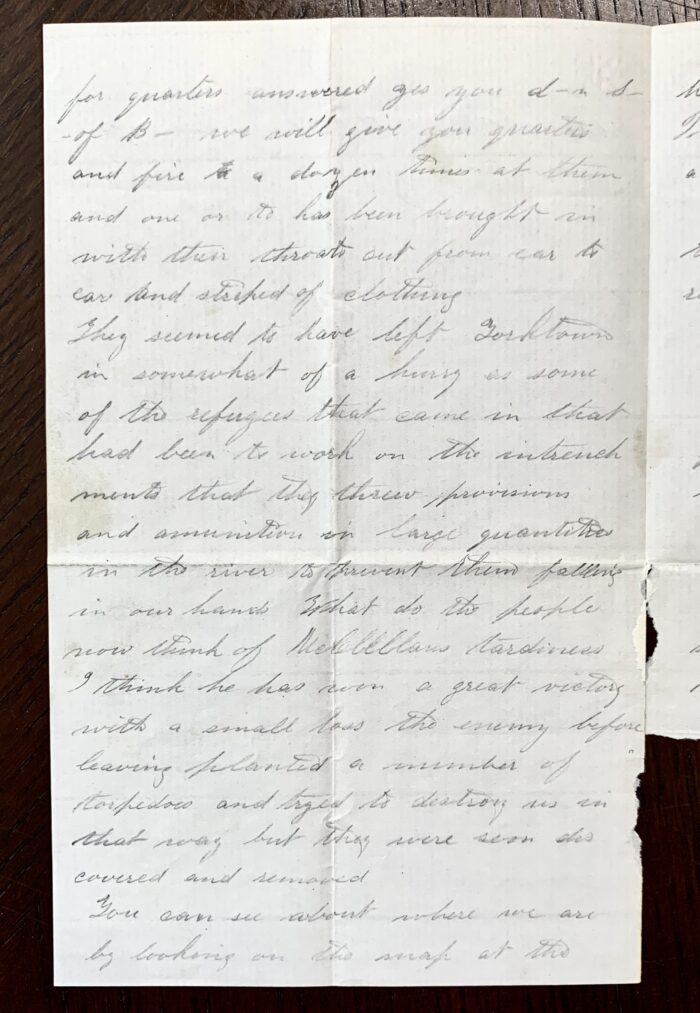 for quarters answered yes you d-n s-
-of B- we will give you quarters
and fire a dozen times at them
and one or to has been brought in
with their throats cut from ear to
ear and striped of clothing
They seemed to have left Yorktown
in somewhat of a hurry as some
of the refugees that came in that
had been to work on the intrench
ments that they threw provisions
and amunition in large quantities
in the river to prevent them falling
in our hands What do the people
now think of McClellans tardiness
I think he has won a great victory
with a small loss the enemy before
leaving planted a number of
torpedoes and tryed to destroy us in
that way but they were soon dis
covered and removed
You can see about where we are
by looking on the map at the